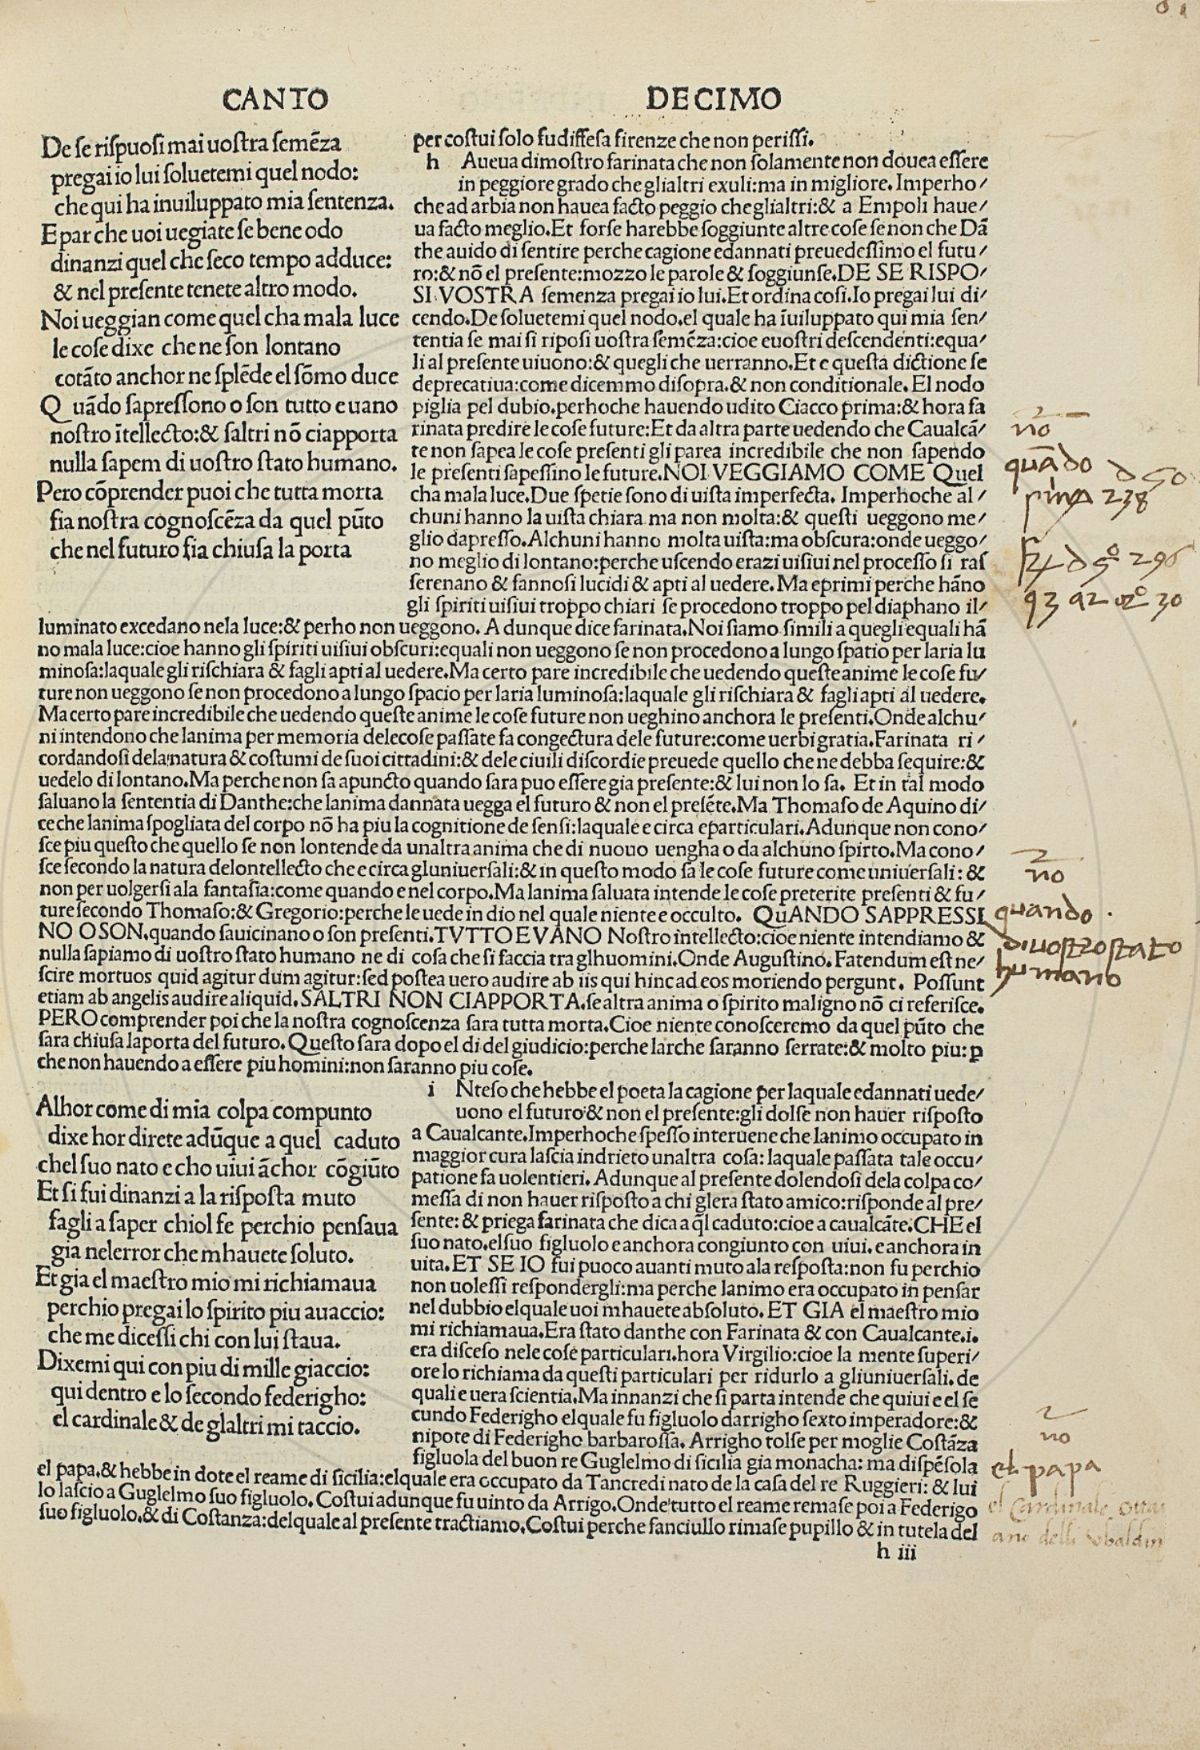 CANTO DECIMO
De se rispuosi mai uostra semēza
pregai io lui soluetemi quel nodo:
che qui ha inuiluppato mia sentenza.
E par che uoi uegiate se bene odo
dinanzi quel che seco tempo adduce:
& nel presente tenete altro modo.
Noi ueggian come quel cha mala luce
le cose dixe che ne son lontano
cotāto anchor ne splēde el sōmo duce
Quādo sapressono o son tutto e uano
nostro ītellecto:& saltri nō ciapporta
nulla sapem di uostro stato humano.
Pero cōprender puoi che tutta morta
fia nostra cognoscēza da quel pūto
che nel futuro fia chiusa la porta
per costui solo fu diffesa firenze che non perissi.
h Aueua dimostro farinata che non solamente non douea essere
in peggiore grado che glialtri exuli:ma in migliore. Imperho/
che ad arbia non hauea facto peggio che glialtri:& a Empoli haue/
ua facto meglio.Et forse harebbe soggiunte altre cose se non che Dā
the auido di sentire perche cagione edannati preuedessimo el futu/
ro:& nō el presente:mozzo le parole & soggiunse.DE SE RISPO/
SI.VOSTRA semenza pregai io lui.Et ordina cosi.Io pregai lui di/
cendo.De soluetemi quel nodo.el quale ha īuiluppato qui mia sen/
tentia se mai si riposi uostra semēza:cioe euostri descendenti:equa/
li al presente uiuono:& quegli che uerranno.Et e questa dictione se
deprecatiua:come dicemmo disopra.& non conditionale. El nodo
piglia pel dubio.perhoche hauendo udito Ciacco prima:& hora fa
rinata predire le cose future:Et da altra parte uedendo che Caualcā/
te non sapea le cose presenti gli parea incredibile che non sapendo
le presenti sapessino le future.NOI VEGGIAMO COME Quel
cha mala luce.Due spetie sono di uista imperfecta. Imperhoche al/
chuni hanno la uista chiara ma non molta:& questi ueggono me/
glio dapresso.Alchuni hanno molta uista:ma obscura:onde ueggo/
no meglio di lontano:perche uscendo erazi uisiui nel processo si ras
serenano & fannosi lucidi & apti al uedere. Ma eprimi perche hāno
gli spiriti uisiui troppo chiari se procedono troppo pel diaphano il/
luminato excedano nela luce:& perho non ueggono. Adunque dice farinata.Noi siamo simili a quegli equali hā
no mala luce:cioe hanno gli spiriti uisiui obscuri:equali non ueggono se non procedono a lungo spatio per laria lu
minosa:laquale gli rischiara & fagli apti al uedere.Ma certo pare incredibile che uedendo queste anime le cose fu/
ture non ueggono se non procedono a lungo spacio per laria luminosa:laquale gli rischiara & fagli apti al uedere.
Ma certo pare incredibile che uedendo queste anime le cose future non ueghino anchora le presenti.Onde alchu/
ni intendono che lanima per memoria delecose passate fa congectura dele future:come uerbi gratia.Farinata ri/
cordandosi dela natura & costumi de suoi cittadini:& dele ciuili discordie preuede quello che ne debba sequire:&
uedelo di lontano.Ma perche non sa apuncto quando sara puo essere gia presente:& lui non lo sa. Et in tal modo
saluano la sententia di Danthe:che lanima dannata uegga el futuro & non el presēte.Ma Thomaso de Aquino di/
ce che lanima spogliata del corpo nō ha piu la cognitione de sensi:laquale e circa eparticulari.Adunque non cono/
sce piu questo che quello se non lontende da unaltra anima che di nuouo uengha o da alchuno spirto.Ma cono/
sce secondo la natura delontellecto che e circa gluniuersali:& in questo modo sa le cose future come uniuersali:&
non per uolgersi ala fantasia:come quando e nel corpo.Ma lanima saluata intende le cose preterite presenti & fu/
ture secondo Thomaso:& Gregorio:perche le uede in dio nel quale niente e occulto. QuANDO SAPPRESSI
NO O SON.quando sauicinano o son presenti.TVTTO E VANO Nostro intellecto:cioe niente intendiamo &
nulla sapiamo di uostro stato humano ne di cosa che si faccia tra glhuomini.Onde Augustino.Fatendum est ne/
scire mortuos quid agitur dum agitur:sed postea uero audire ab iis qui hinc ad eos moriendo pergunt. Possunt
etiam ab angelis audire aliquid.SALTRI NON CIAPPORTA.se altra anima o spirito maligno nō ci referisce.
PERO comprender poi che la nostra cognoscenza sara tutta morta.Cioe niente conosceremo da quel pūto che
sara chiusa laporta del futuro.Questo sara dopo el di del giudicio:perche larche saranno serrate:& molto piu:ꝑ
che non hauendo a essere piu homini:non saranno piu cose.
Alhor come di mia colpa compunto
dixe hor direte adūque a quel caduto
chel suo nato e cho uiui āchor cōgiūto
Et si fui dinanzi a la risposta muto
fagli a saper chiol fe perchio pensaua
gia nelerror che mhauete soluto.
Et gia el maestro mio mi richiamaua
perchio pregai lo spirito piu auaccio:
che me dicessi chi con lui staua.
Dixemi qui con piu di mille giaccio:
qui dentro e lo secondo federigho:
el cardinale & de glaltri mi taccio.
i Nteso che hebbe el poeta la cagione per laquale edannati uede/
uono el futuro & non el presente:gli dolse non hauer risposto
a Caualcante.Imperhoche spesso interuene che lanimo occupato in
maggior cura lascia indrieto unaltra cosa: laquale passata tale occu/
patione fa uolentieri. Adunque al presente dolendosi dela colpa co/
messa di non hauer risposto a chi glera stato amico:risponde al pre/
sente:& priega farinata che dica a ql̄ caduto:cioe a caualcāte.CHE el
suo nato.elsuo figluolo e anchora congiunto con uiui.e anchora in
uita.ET SE IO fui puoco auanti muto ala resposta:non fu perchio
non uolessi respondergli:ma perche lanimo era occupato in pensar
nel dubbio elquale uoi mhauete absoluto. ET GIA el maestro mio
mi richiamaua.Era stato danthe con Farinata & con Caualcante.i.
era disceso nele cose particulari.hora Virgilio:cioe la mente superi/
ore lo richiama da questi particulari per ridurlo a gliuniuersali.de
quali e uera scientia.Ma innanzi che si parta intende che quiui e el se
cundo Federigho elquale fu figluolo darrigho sexto imperadore:&
nipote di Federigho barbarossa. Arrigho tolse per moglie Costāza
figluola del buon re Guglelmo di sicilia gia monacha: ma dispēsola
el papa.& hebbe in dote el reame di sicilia:elquale era occupato da Tancredi nato de la casa del re Ruggieri: & lui
lo lascio a Guglelmo suo figluolo. Costui adunque fu uinto da Arrigo.Onde tutto el reame remase poi a Federigo
suo figluolo.& di Costanza:delquale al presente tractiamo.Costui perche fanciullo rimase pupillo & in tutela del
h iii
no
quādo
238
296
93 92 30
no
quando
di uostro stato
humano
no
el papa
el Cardinale otta
ano delli Vbaldin